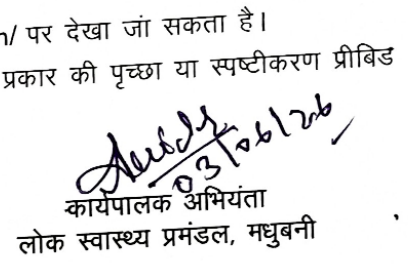 n/ पर देखा जां सकता है।
प्रकार की पृच्छा या स्पष्टीकरण प्रीबिड
03/06/26
कार्यपालक अभियंता
लोक स्वास्थ्य प्रमंडल, मधुबनी